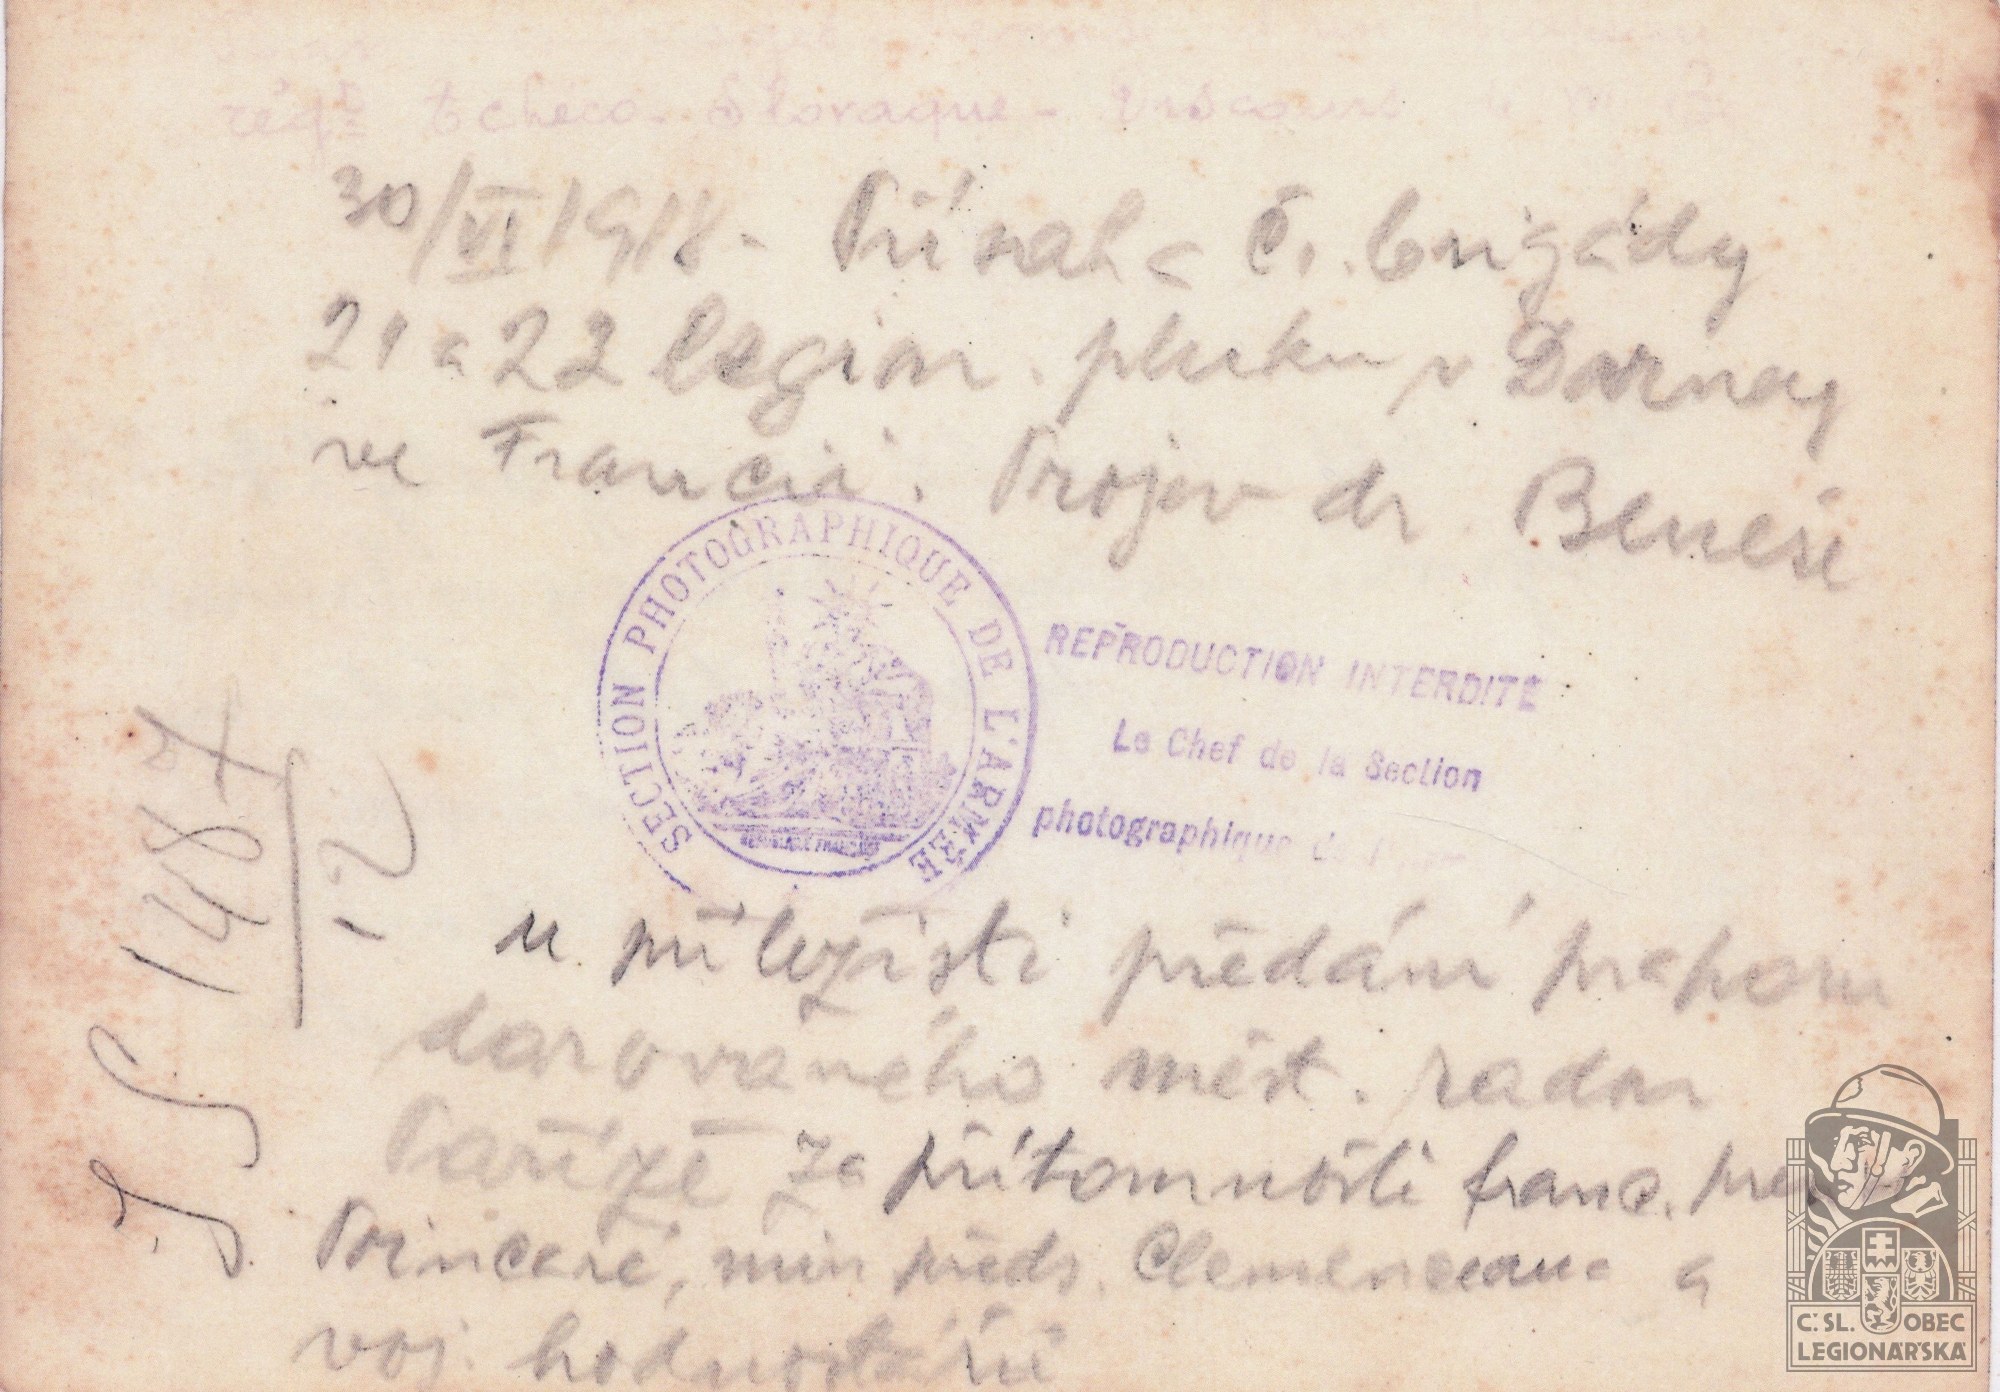 régt Tcheco-Slovaque-
30/VI 1918 - Přísaha Čs. brigády
21 a 22 legion. pluku v Darney
ve Francii. Projev dr Beneše
SECTION PHOTOGRAPHIQUE DE L'ARMÉE
RÉPUBLIQUE FRANÇAISE
REPRODUCTION INTERDITE
Le Chef de la Section
photographique de
u příležitosti předání praporu
darovaného měst. radou
Paříže za přítomnosti franc.
Poincaré, min předs. Clemenceaua a
voj. hodnostářů
1487
12
Č. SL. OBEC
LEGIONÁŘSKÁ